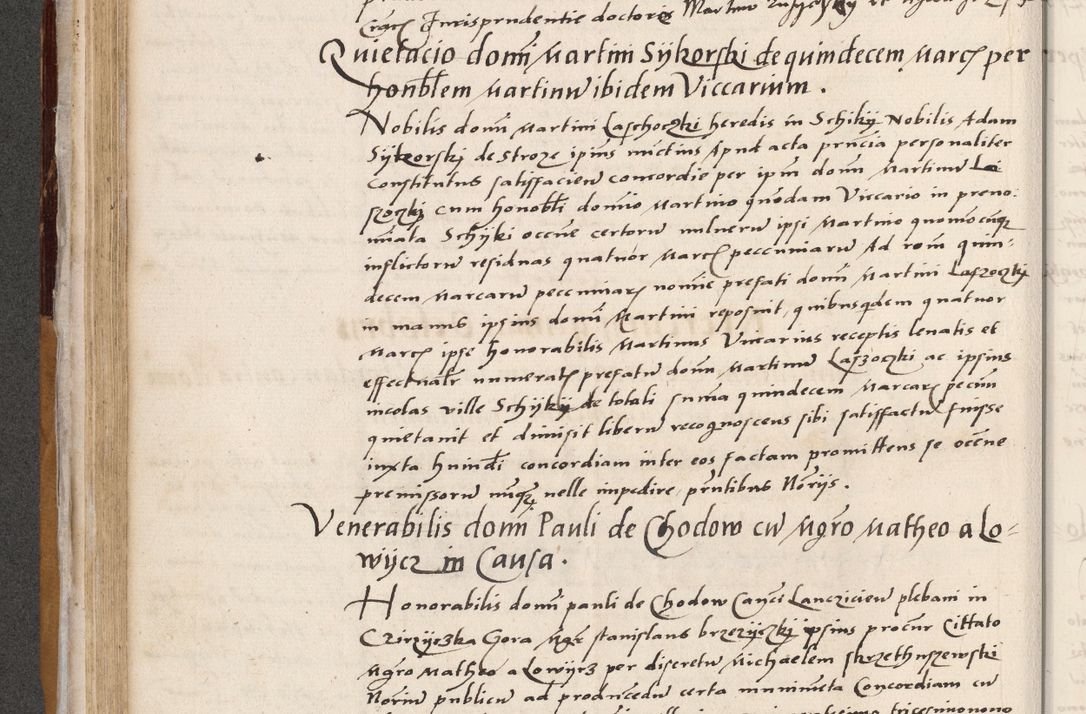 Quietacio domi Martini Sykorski de quindecem Marcs per
honoblem Martinu ibidem Viccarium .
Nobilis domi Martini Laschoczki heredis in Schiky Nobilis Adam
Sykorski de Stroze ipius nuctius Apud acta pnncia personaliter
Constitutus satisfacien concordie per ipm domi Martinu La
szoczki cum honobli domio Martino quodam Viccario in preno:
minata Schyki occne certoru vulneru ipsi Martino quomocuqz
inflictoru residuas quatuor Marcs peccuniaru Ad rom quin-
decem Marcaru peccuniars nomine prefati domi Martini Laszoczki
in manus ipsius domi Martini reposuit, quibusqdem quatuor
Marcs ipse honorabilis Martinus Viccarius receptis levatis et
effectualr numerats prefatu domi Martinu Laszoczki ac ipsius
incolas ville Schyky de totali suma quindecem Marcars pecuni
quietavit et dimisit liberu recognoscens sibi satisfactu fuisse
iuxta huiudi concordiam inter eos factam promittens se occne
premissoru nuqz velle impedire, pntibus Norijs .
Venerabilis domi Pauli de Chodow cu Mgro Matheo a Lo-
wijcz in Causa .
Honorabilis domi pauli de Chodow Canci Lancicien plebani in
Czirzyczka Gora Mgr stanislaus brzezyczki ipsius procur Cittato
Mgro Matheo a Lowijcz per discretu Michaelem skrzethuszewski
Noriu publicu ad producedu certa munimeta Concordiam cu